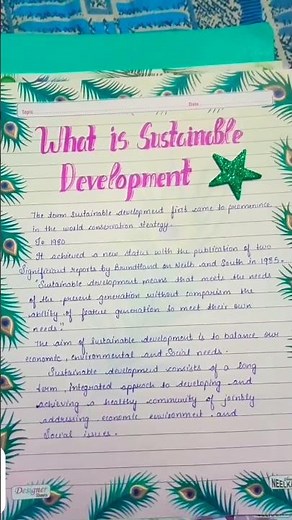 Topic
Date
What is Sustainable
Development
The term sustainable development first came to prominence
in the world conservation strategy.
In 1980.
It achieved a new status with the publication of two
significant reports by Brundtland on Neith and South in 1983.
"Sustainable development means that meets the needs
of the present generation without comparism the
ability of feature generation to meet their own
needs."
The aim of Sustainable development is to balance our
economic, environmental and Social needs.
Sustainable development consists of a long
term, Integrated approch to developing and
achieving a healthy community of jointly
addressing economic environment, and
Social issues.
Designer
NEELKA